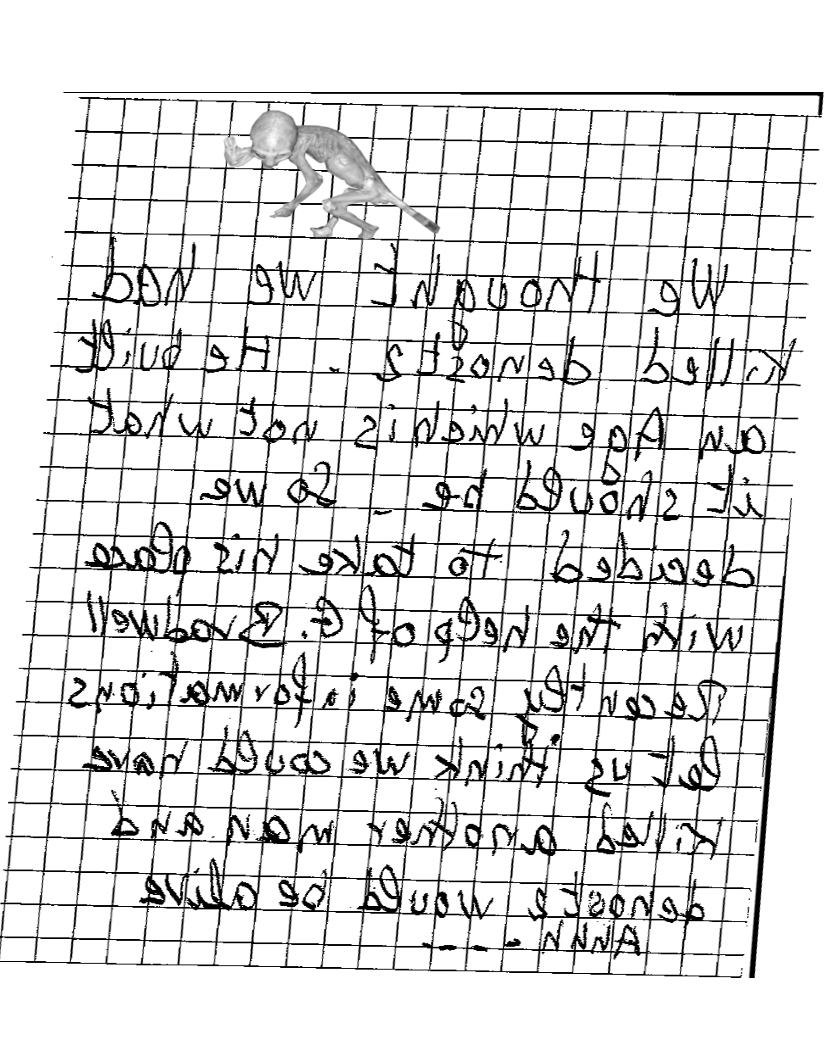 We thought we had
killed denoste . He built
an Age which is not what
it should be _ So we
decided to take his place
with the help of G. Bradwell
Recently some informations
let us think we could have
killed another man and
denoste would be alive
ANNN - ---